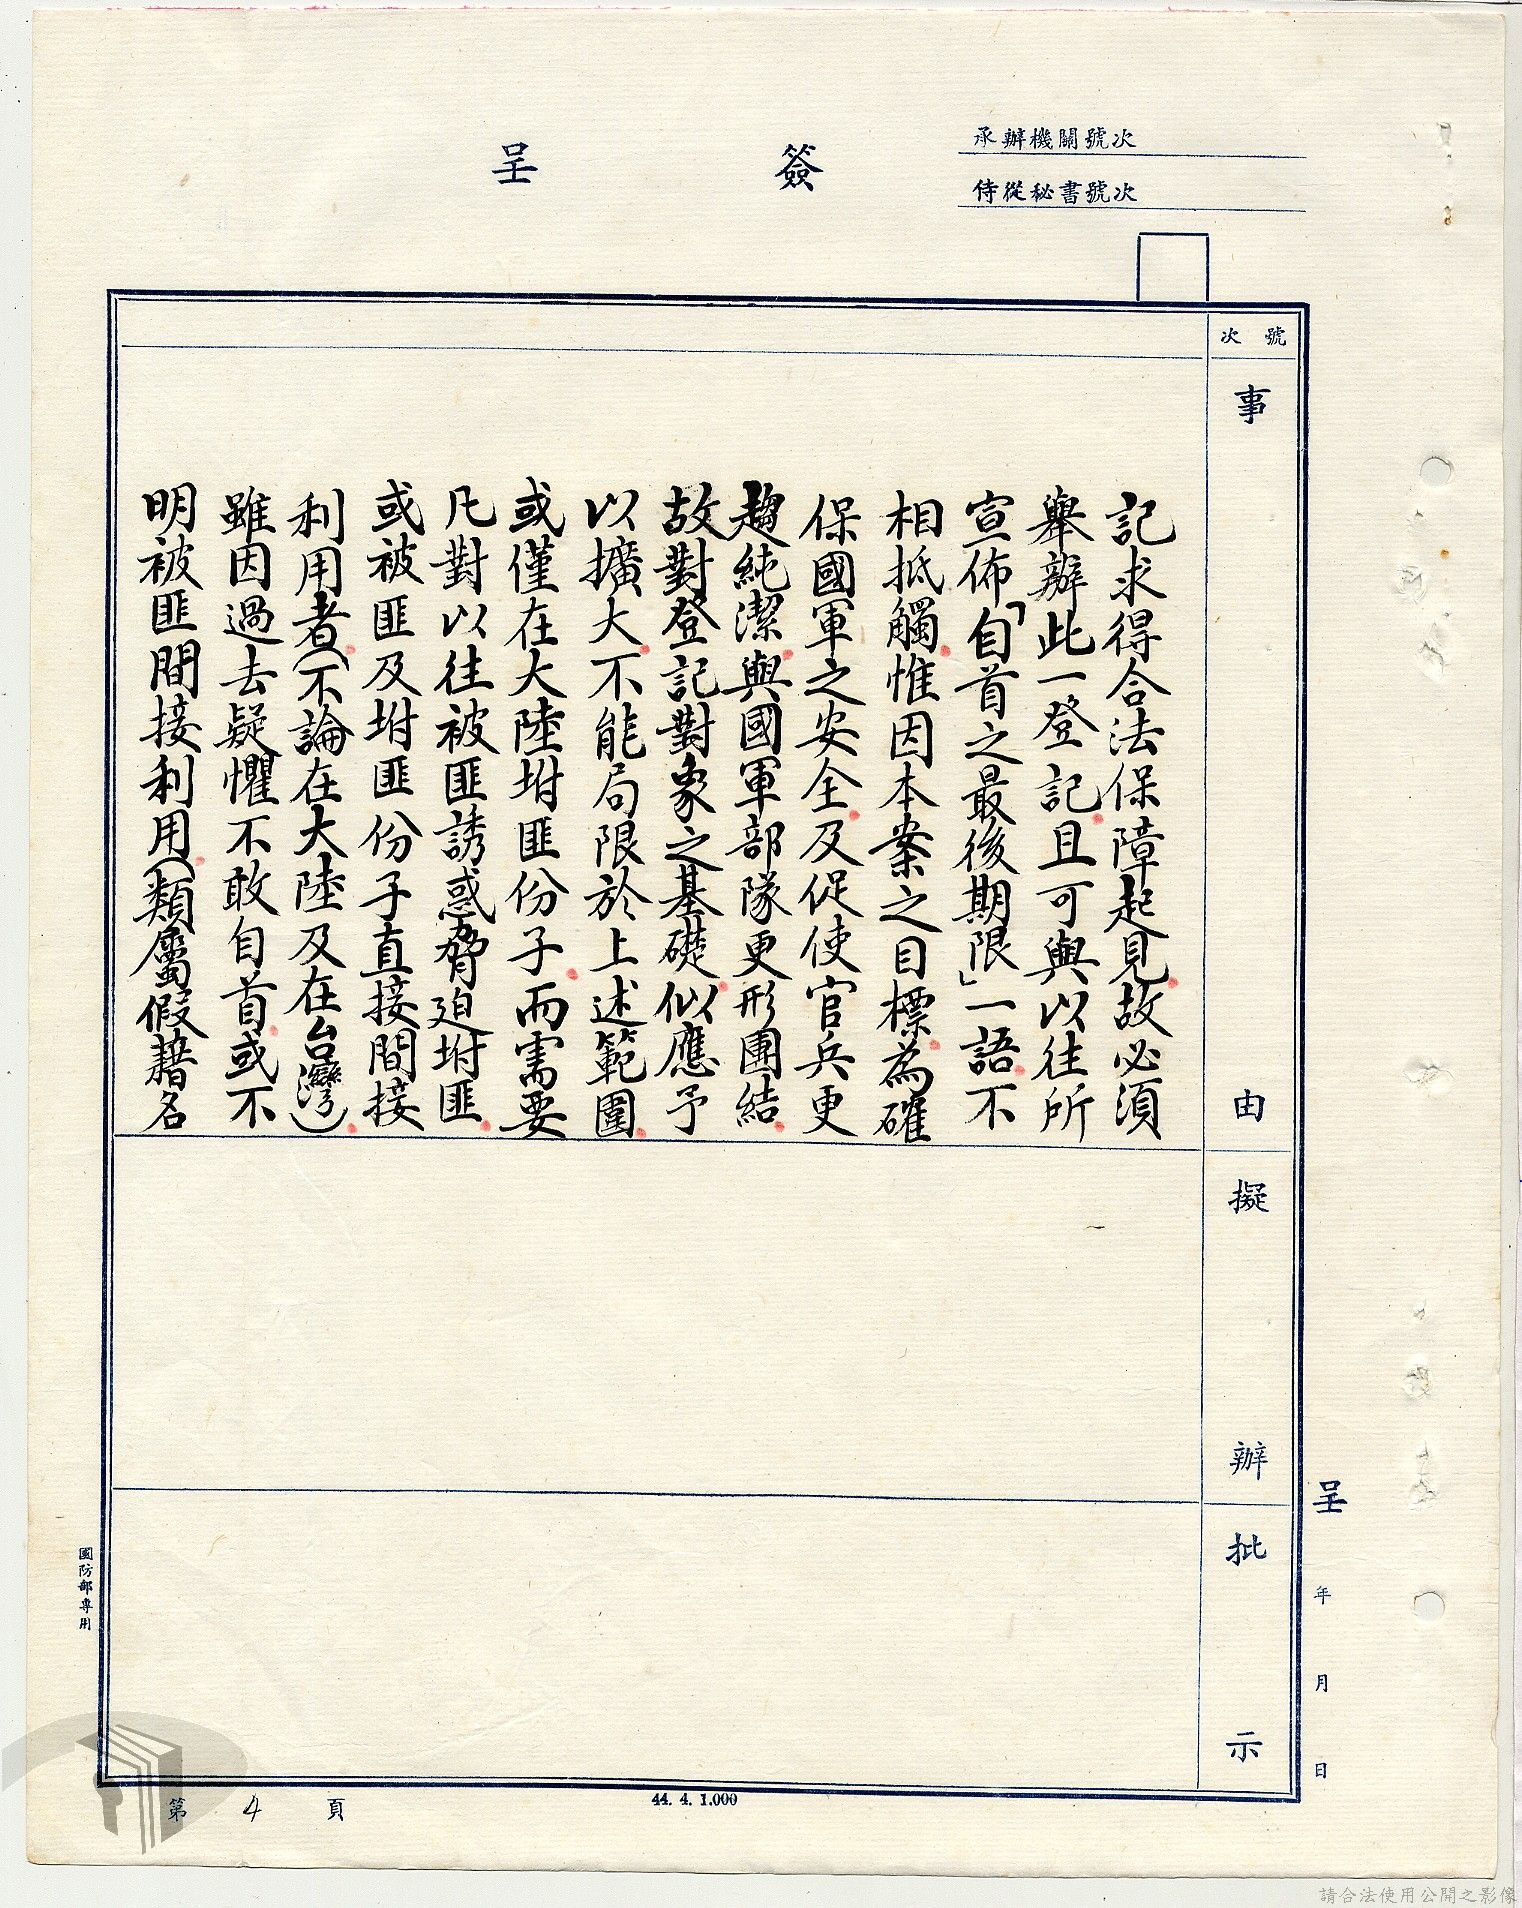 簽呈
承辦機關號次
侍從秘書號次
號次
事由
擬辦
批示
記求得合法保障起見。故必須
舉辦此一登記。且可與以往所
宣佈「自首之最後期限」一語。不
相抵觸。惟因本案之目標。為確
保國軍之安全。及促使官兵更
趨純潔。與國軍部隊更形團結。
故對登記對象之基礎。似應予
以擴大。不能局限於上述範圍。
或僅在大陸坿匪份子。而需要
凡對以往被匪誘惑脅迫坿匪。
或被匪及坿匪份子直接間接
利用者。(不論在大陸及在台灣)。
雖因過去疑懼不敢自首。或不
明被匪間接利用。(類屬假藉名
呈 年 月 日
國防部專用
第 4 頁
44. 4. 1.000
請合法使用公開之影像